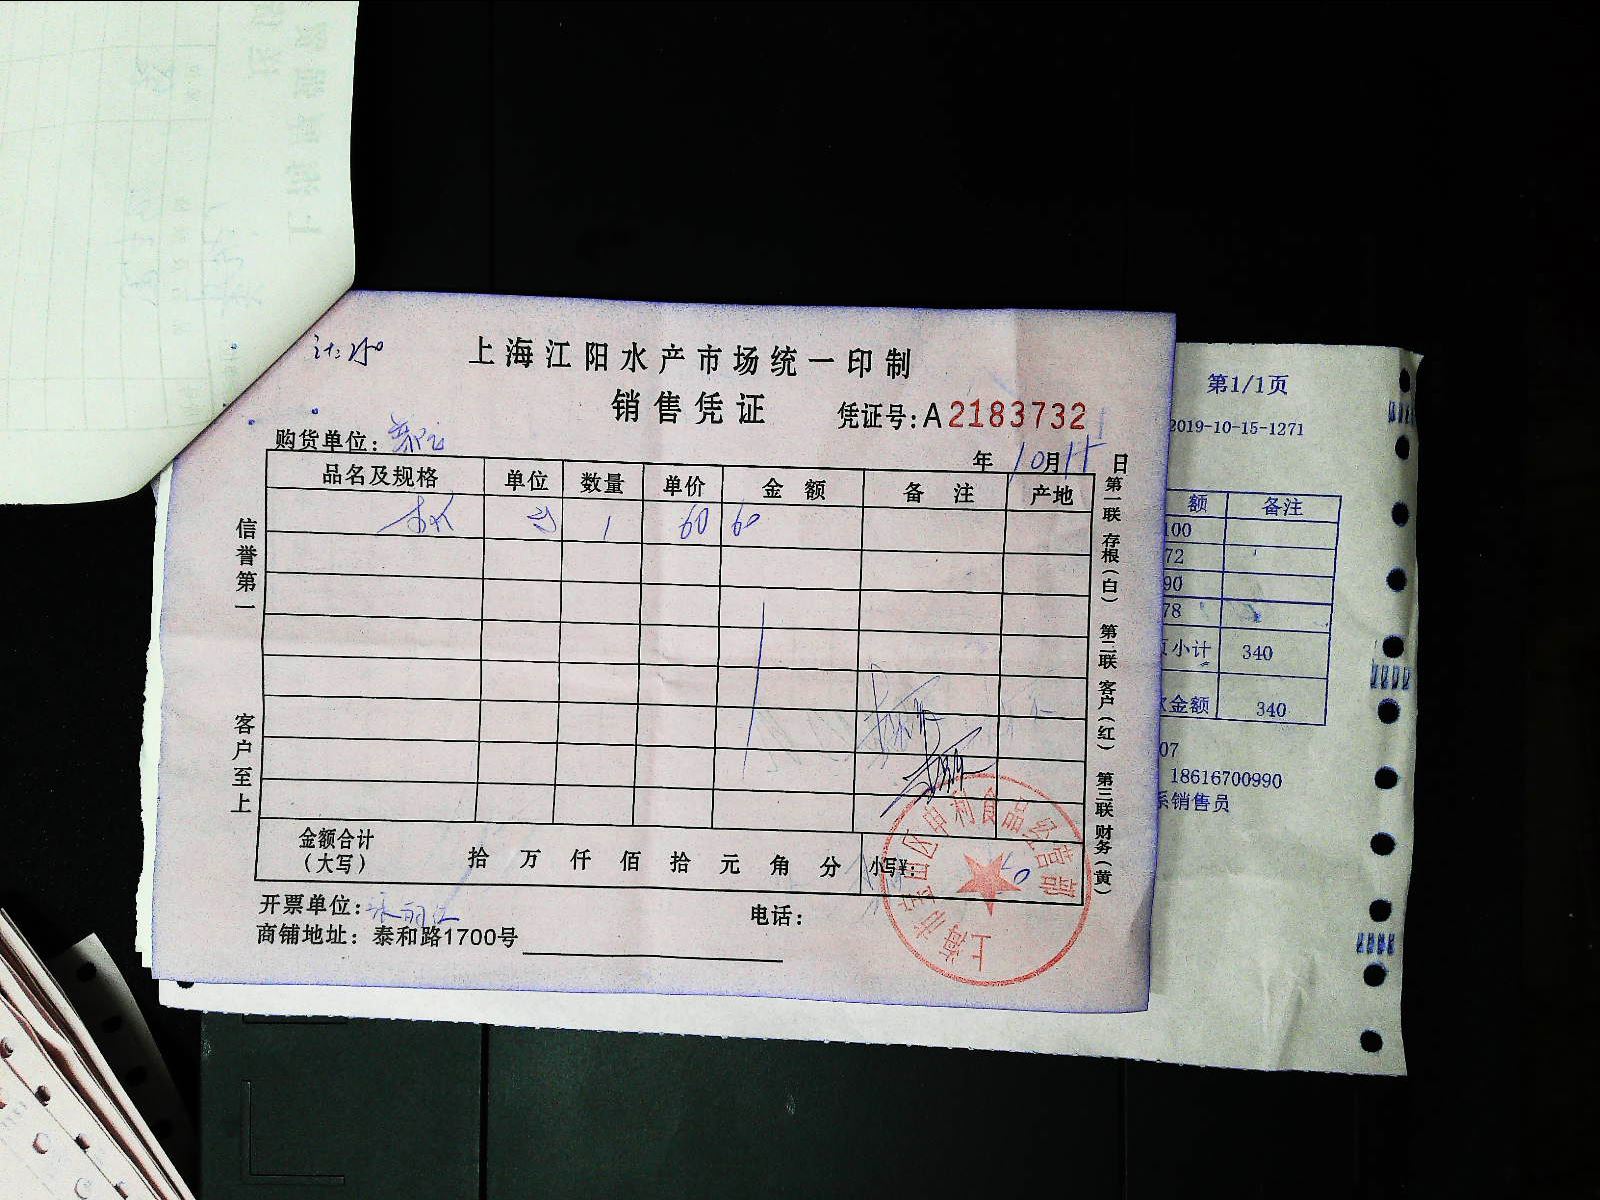 上海江阳水产市场统一印制
销售凭证
凭证号:A2183732
购货单位:
年 10月15日
品名及规格 单位 数量 单价 金额 备注 产地
1 60 60
信誉第一
客户至上
金额合计
(大写)
拾 万 仟 佰 拾 元 角 分 小写¥: 60
开票单位:
电话:
商铺地址: 泰和路1700号
第一联 存根(白) 第二联 客户(红) 第三联 财务(黄)
上海市宝山区申利食品经营部
第1/1页
2019-10-15-1271
额 备注
100
72
90
78
小计 340
金额 340
07
18616700990
系销售员